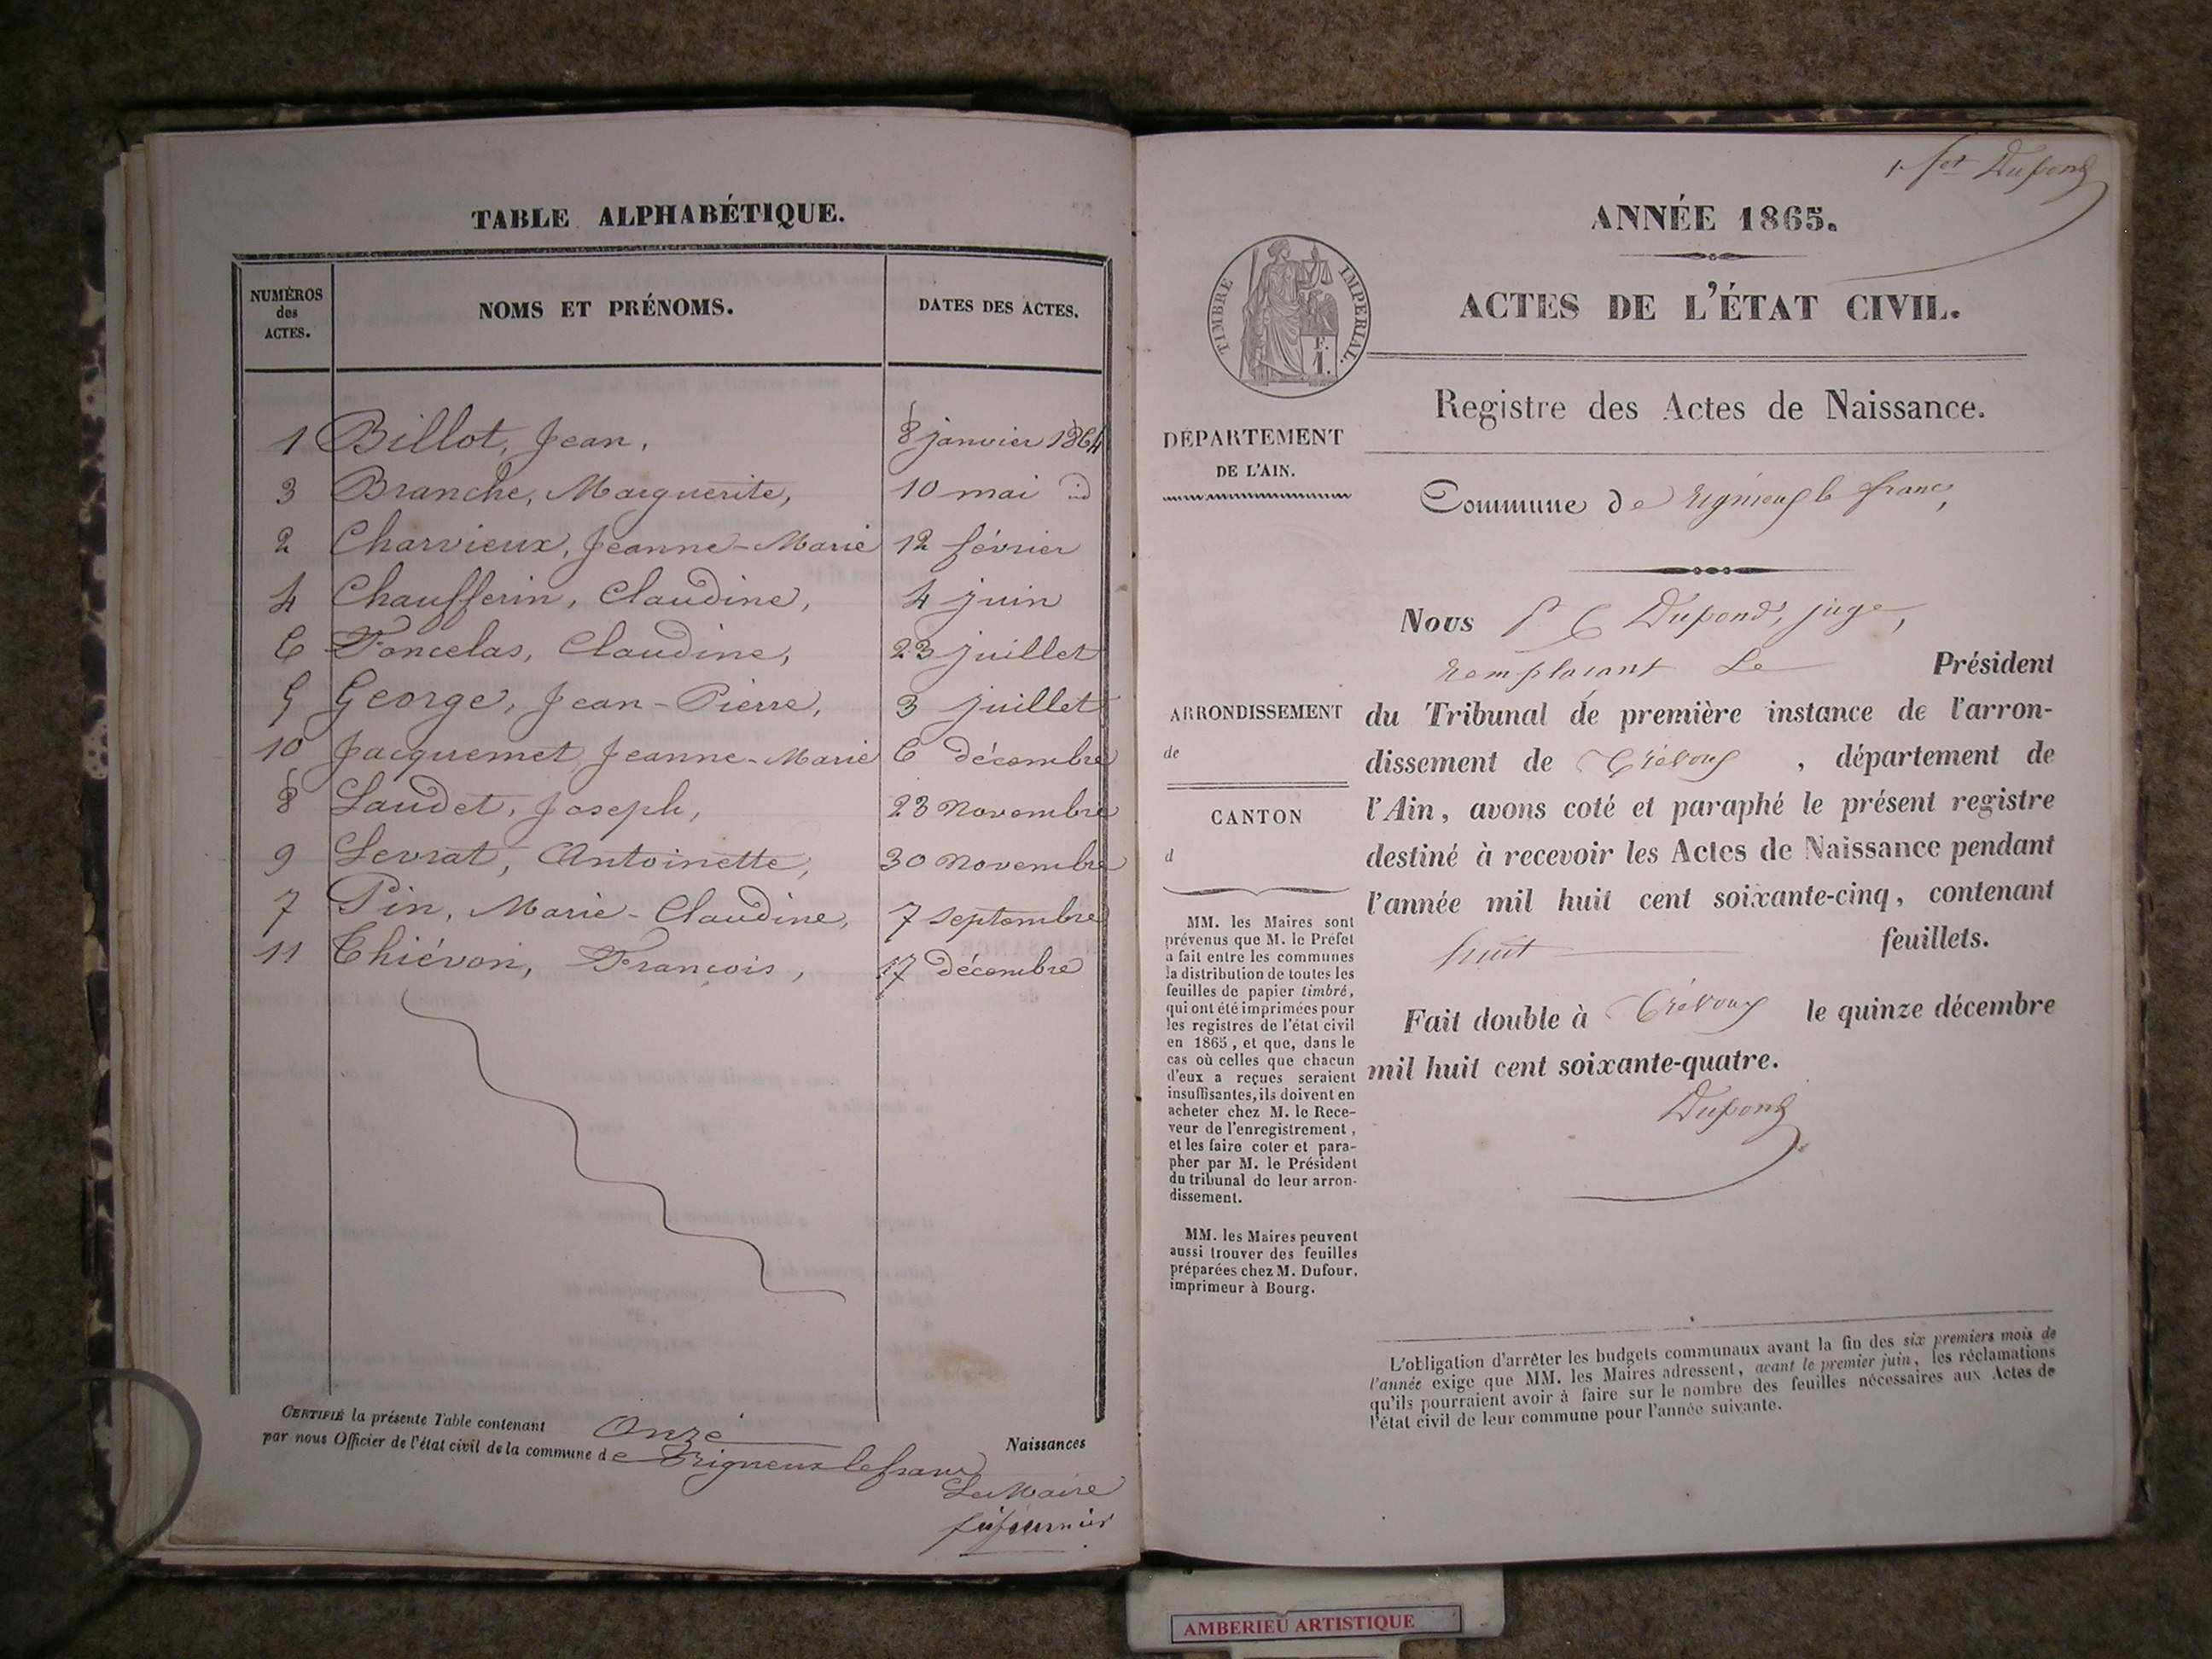 TABLE ALPHABÉTIQUE.
NUMÉROS des ACTES.
NOMS ET PRÉNOMS.
DATES DES ACTES.
1 Billot, Jean, 8 janvier 1864
3 Branche, Marguerite, 10 mai id
2 Charvieux, Jeanne-Marie 12 février
4 Chaufferin, Claudine, 4 juin
6 Foncelas, Claudine, 23 juillet
5 George, Jean-Pierre, 3 juillet
10 Jacquemet, Jeanne-Marie 6 décembre
8 Laudet, Joseph, 23 novembre
9 Levrat, Antoinette, 30 novembre
7 Pin, Marie-Claudine, 7 septembre
11 Thiévon, François, 17 décembre
CERTIFIÉ la présente Table contenant Onze Naissances
par nous Officier de l'état civil de la commune de Rigneux le franc
Le Maire
1er fet Dupond
ANNÉE 1865.
TIMBRE IMPERIAL.
F.
1.
ACTES DE L'ÉTAT CIVIL.
Registre des Actes de Naissance.
DÉPARTEMENT
DE L'AIN.
Commune de Rignieux le franc,
Nous Dupond, juge,
remplacant Le Président
ARRONDISSEMENT
de
CANTON
d
du Tribunal de première instance de l'arron-
dissement de Trévoux, département de
l'Ain, avons coté et paraphé le présent registre
destiné à recevoir les Actes de Naissance pendant
l'année mil huit cent soixante-cinq, contenant
huit feuillets.
Fait double à Trévoux le quinze décembre
mil huit cent soixante-quatre.
Dupond
MM. les Maires sont
prévenus que M. le Préfet
a fait entre les communes
la distribution de toutes les
feuilles de papier timbré,
qui ont été imprimées pour
les registres de l'état civil
en 1865, et que, dans le
cas où celles que chacun
d'eux a reçues seraient
insuffisantes, ils doivent en
acheter chez M. le Rece-
veur de l'enregistrement,
et les faire coter et para-
pher par M. le Président
du tribunal de leur arron-
dissement.
MM. les Maires peuvent
aussi trouver des feuilles
préparées chez M. Dufour,
imprimeur à Bourg.
L'obligation d'arrêter les budgets communaux avant la fin des six premiers mois de
l'année exige que MM. les Maires adressent, avant le premier juin, les réclamations
qu'ils pourraient avoir à faire sur le nombre des feuilles nécessaires aux Actes de
l'état civil de leur commune pour l'année suivante.
AMBERIEU ARTISTIQUE